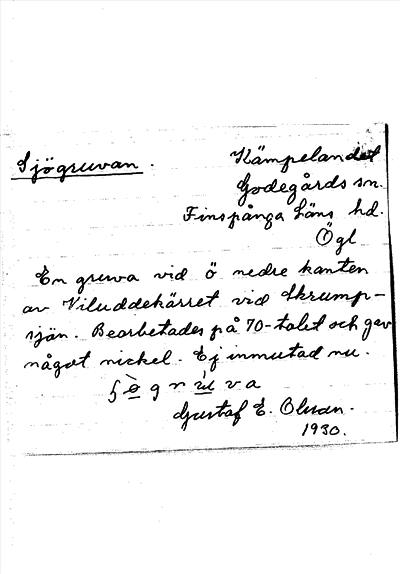 Sjögruvan.
Kämpelandet
Godegårds sn.
Finspånga Läns hd.
Ögl
En gruva vid ö nedre kanten
av Viluddekärret vid Skrump-
sjön. Bearbetades på 70-talet och gav
något nickel. Ej inmutad nu.
Gustaf E. Olsson.
1930.